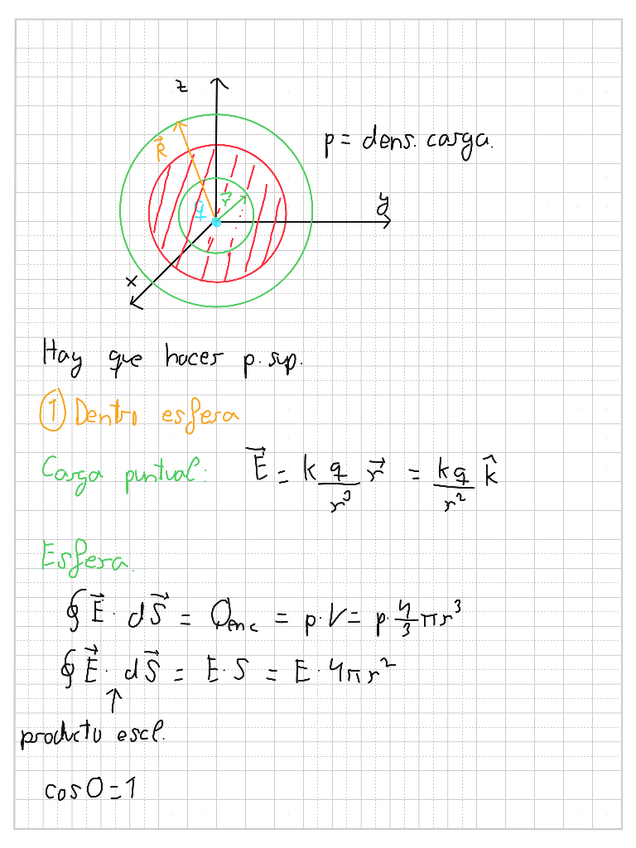 z
p = dens. carga.
R⃗
q
r⃗
y
x
Hay que hacer p. sup.
① Dentro esfera
Carga puntual: E⃗ = k q/r³ r⃗ = kq/r² k̂
Esfera.
∮ E⃗ · dS⃗ = Qenc = p·V = p·4/3 πr³
∮ E⃗ · dS⃗ = E·S = E·4πr²
↑
producto escl.
cos0=1